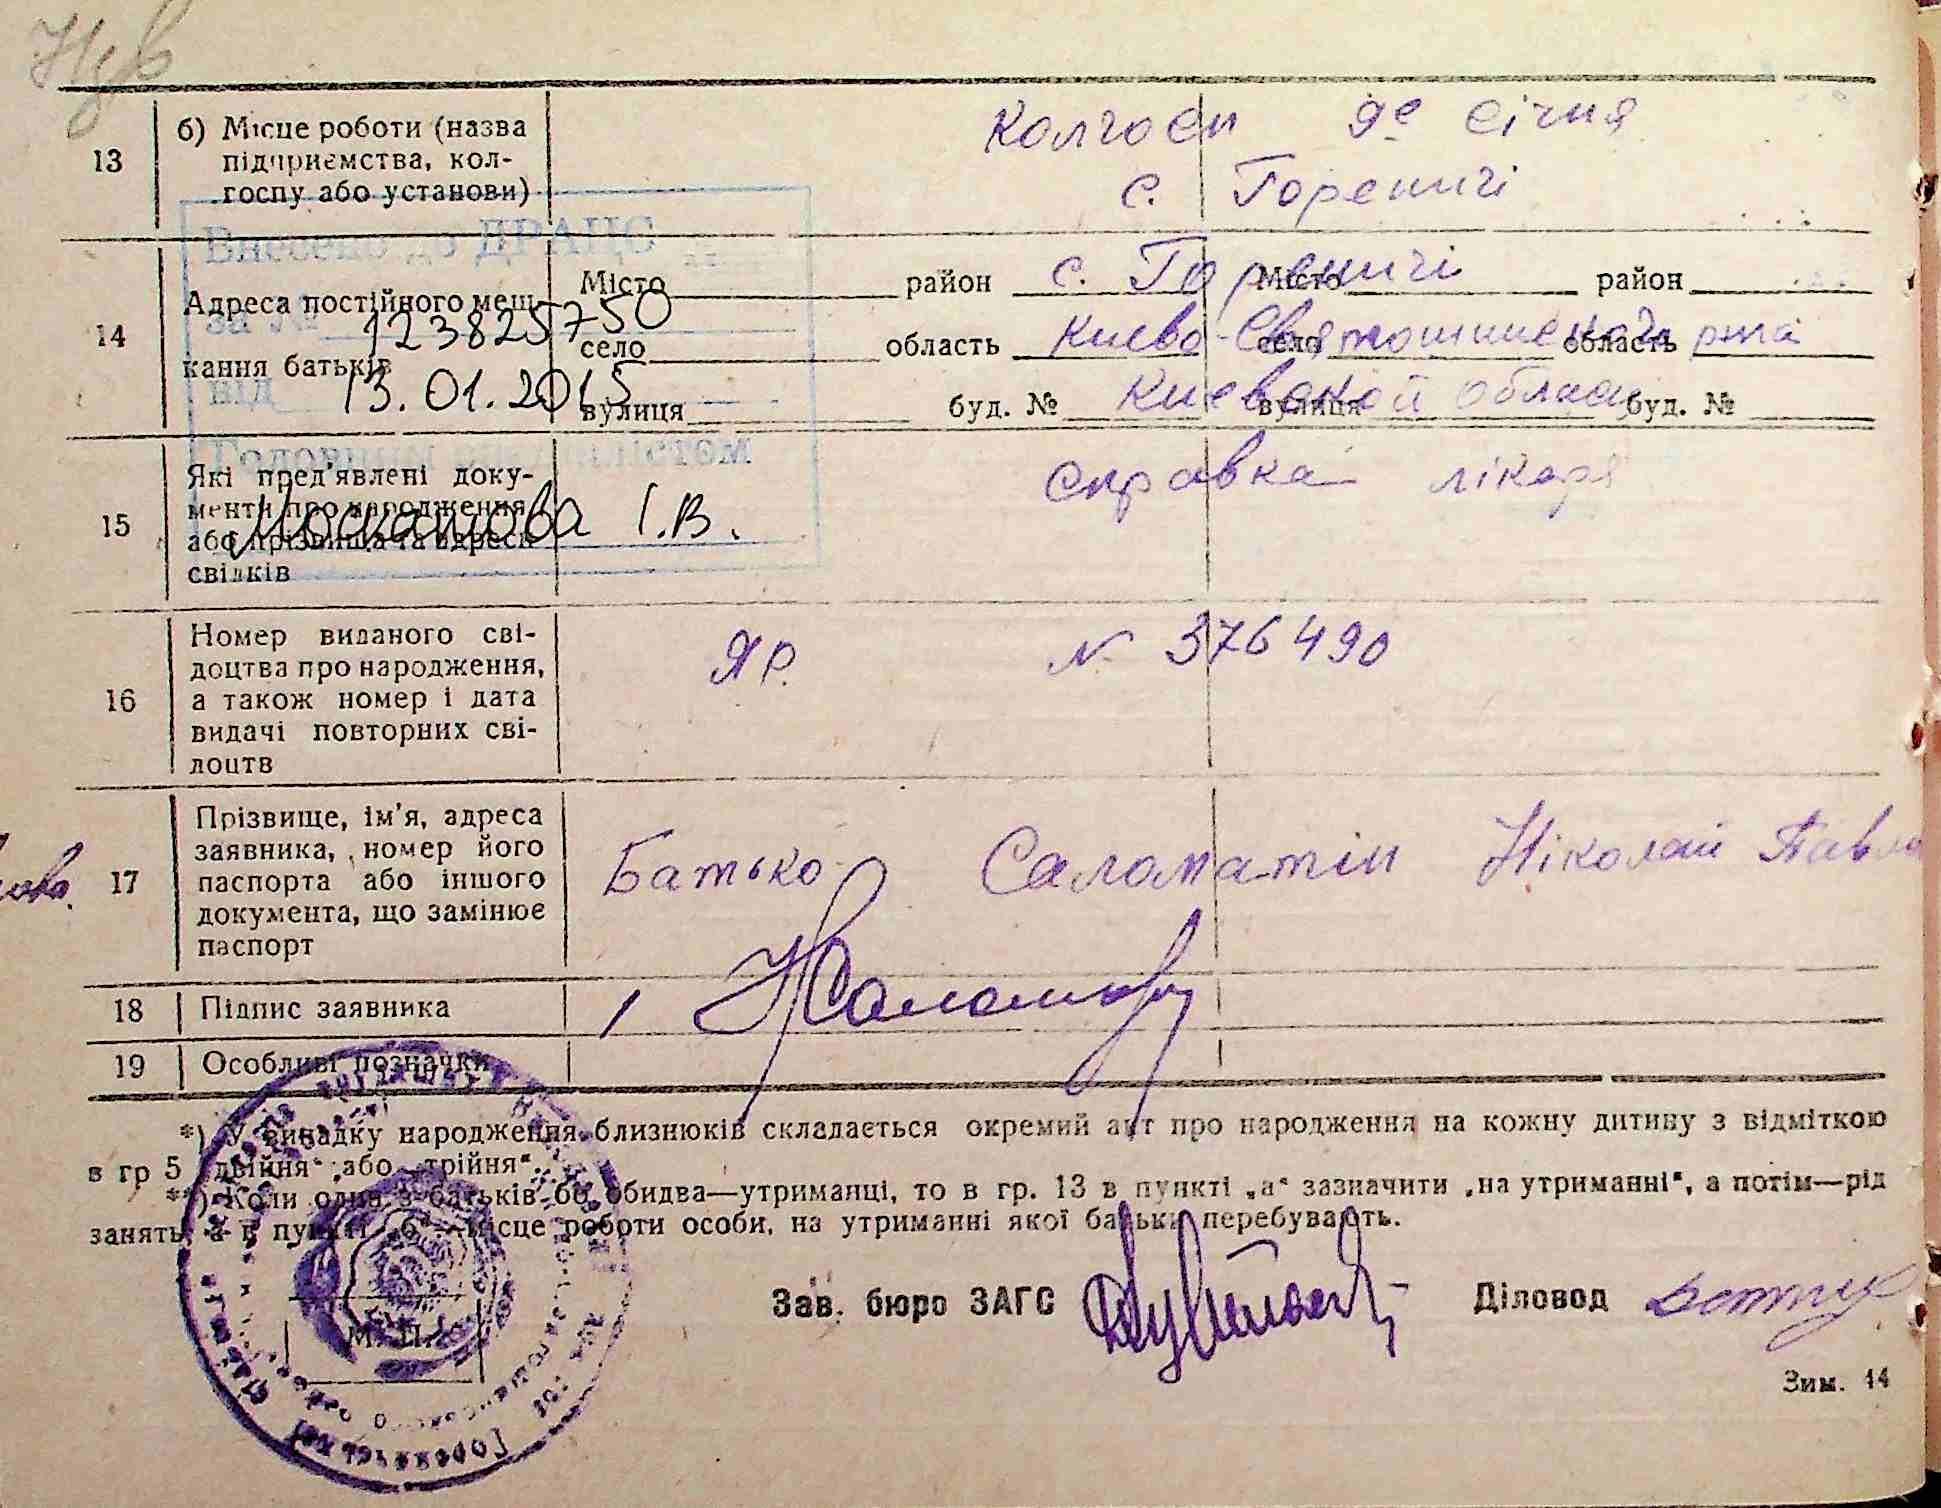 13
б) Місце роботи (назва
підприємства, кол-
госпу або установи)
Колгосп 9е січня
с. Гореничі
Внесено до ДРАЦС
за № 123825750
від 13.01.2015
Головним спеціалістом
І.В.
14
Адреса постійного меш-
кання батьків
Місто район с. Гореничі Місто район
село область Києво-Святошинского р-на село область
вулиця буд. № Киевской област вулиця буд. №
15
Які пред'явлені доку-
менти про народження
або прізвища та адреси
свідків
Справка лікаря
16
Номер виданого сві-
доцтва про народження,
а також номер і дата
видачі повторних сві-
доцтв
ЯР. № 376490
17
Прізвище, ім'я, адреса
заявника, номер його
паспорта або іншого
документа, що замінює
паспорт
Батько Саломатін Ніколай Павло
18 Підпис заявника
19 Особливі позначки
*) У випадку народження близнюків складається окремий акт про народження на кожну дитину з відміткою
в гр 5 „двійня“ або „трійня“.
**) Коли один з батьків бо обидва—утриманці, то в гр. 13 в пункті „а“ зазначити „на утриманні“, а потім—рід
занять, а в пункті „б“—місце роботи особи, на утриманні якої батьки перебувають.
М. П.
Зав. бюро ЗАГС Діловод
Зим. 14